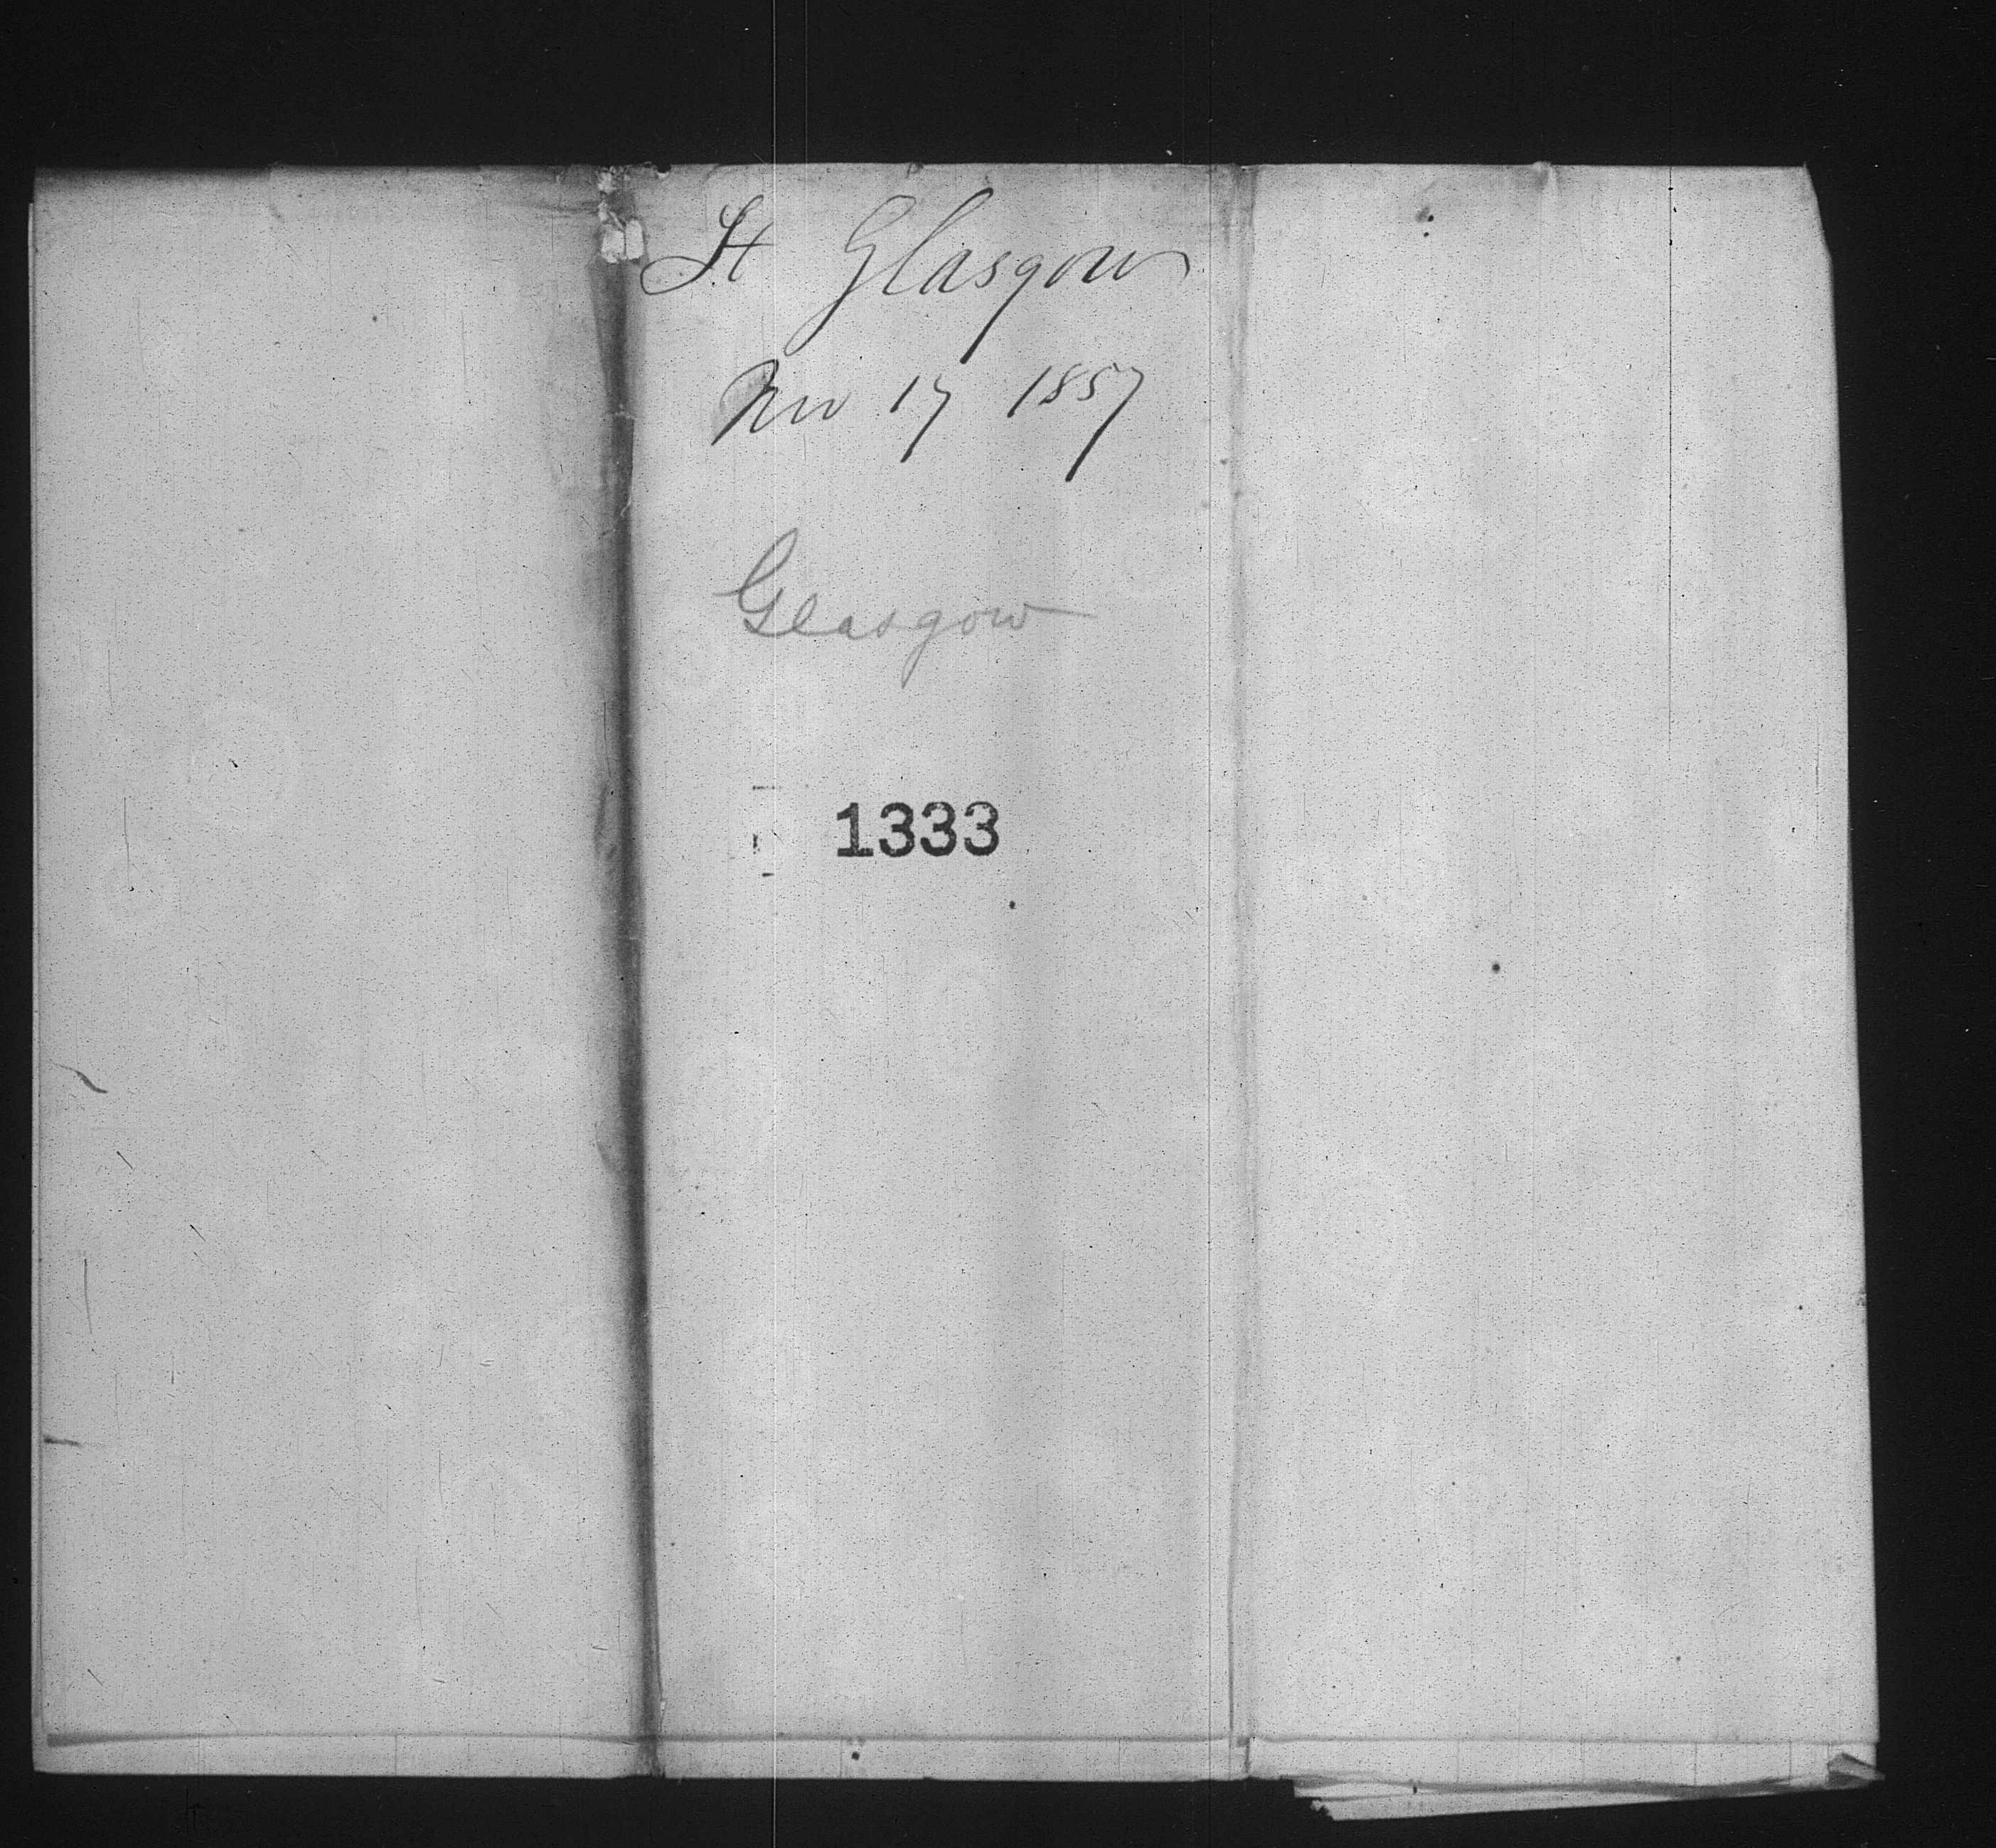 St Glasgow
Nov 17 1857
Glasgow
1333